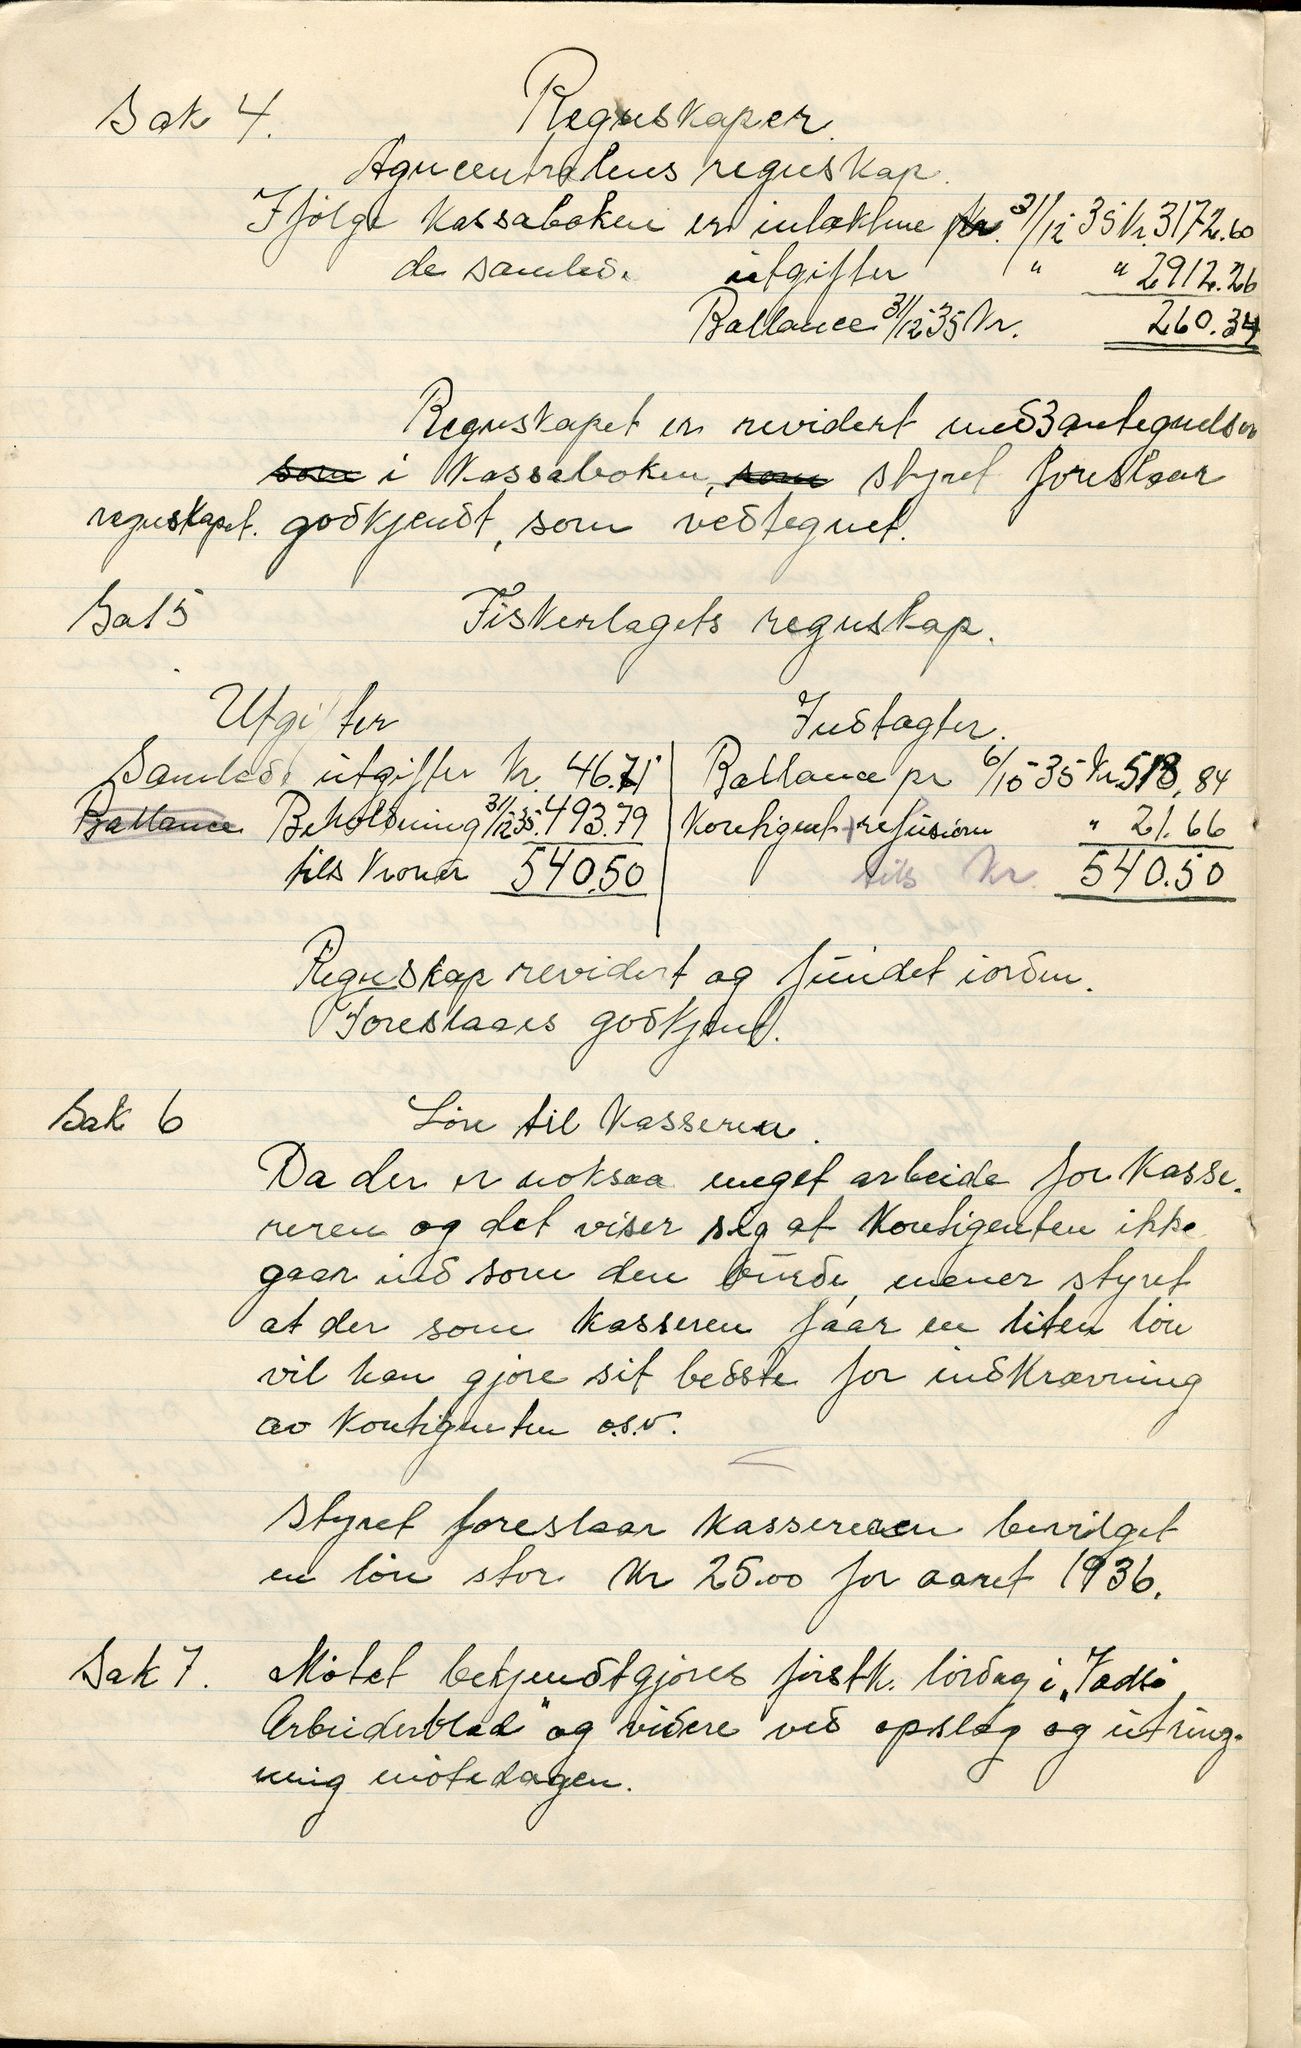 Sak 4. Regnskaper.
Agncentralens regnskap.
Ifølge Kassaboken er intektene pr. 31/12 35 Kr. 3172.60
de samled. utgifter " " 2912.26
Ballance 31/12 35 Kr. 260.34
Regnskapet er revidert med 3 antegnelser
som i Kassaboken, som styret foreslaar
regnskapet. godkjendt, som vedtegnet.
Sak 5 Fiskerlagets regnskap.
Utgifter Indtagter.
Samled. utgifter Kr. 46.71 Ballance pr 6/10-35 Kr. 518,84
Ballance Beholdning 31/12 35. 493.79 Kontigent refusion " 21.66
tils Kroner 540.50 tils Kr. 540.50
Regnskap revidert og fundet iorden.
Foreslaaes godkjent.
Sak 6 Løn til Kasseren.
Da der er noksaa meget arbeide for Kasse-
reren og det viser seg at Kontigenten ikke
gaar ind som den burde, mener styret
at der som Kasseren faar en liten løn
vil han gjøre sit bedste for indkrævning
av Kontigenten o.s.v.
Styret foreslaar Kassereren bevilget
en løn stor Kr 25.00 for aaret 1936.
Sak 7. Møtet bekjendtgjøres førstk. lørdag i "Vadsø
Arbeiderblad" og videre ved opslag og utring-
ning møtedagen.